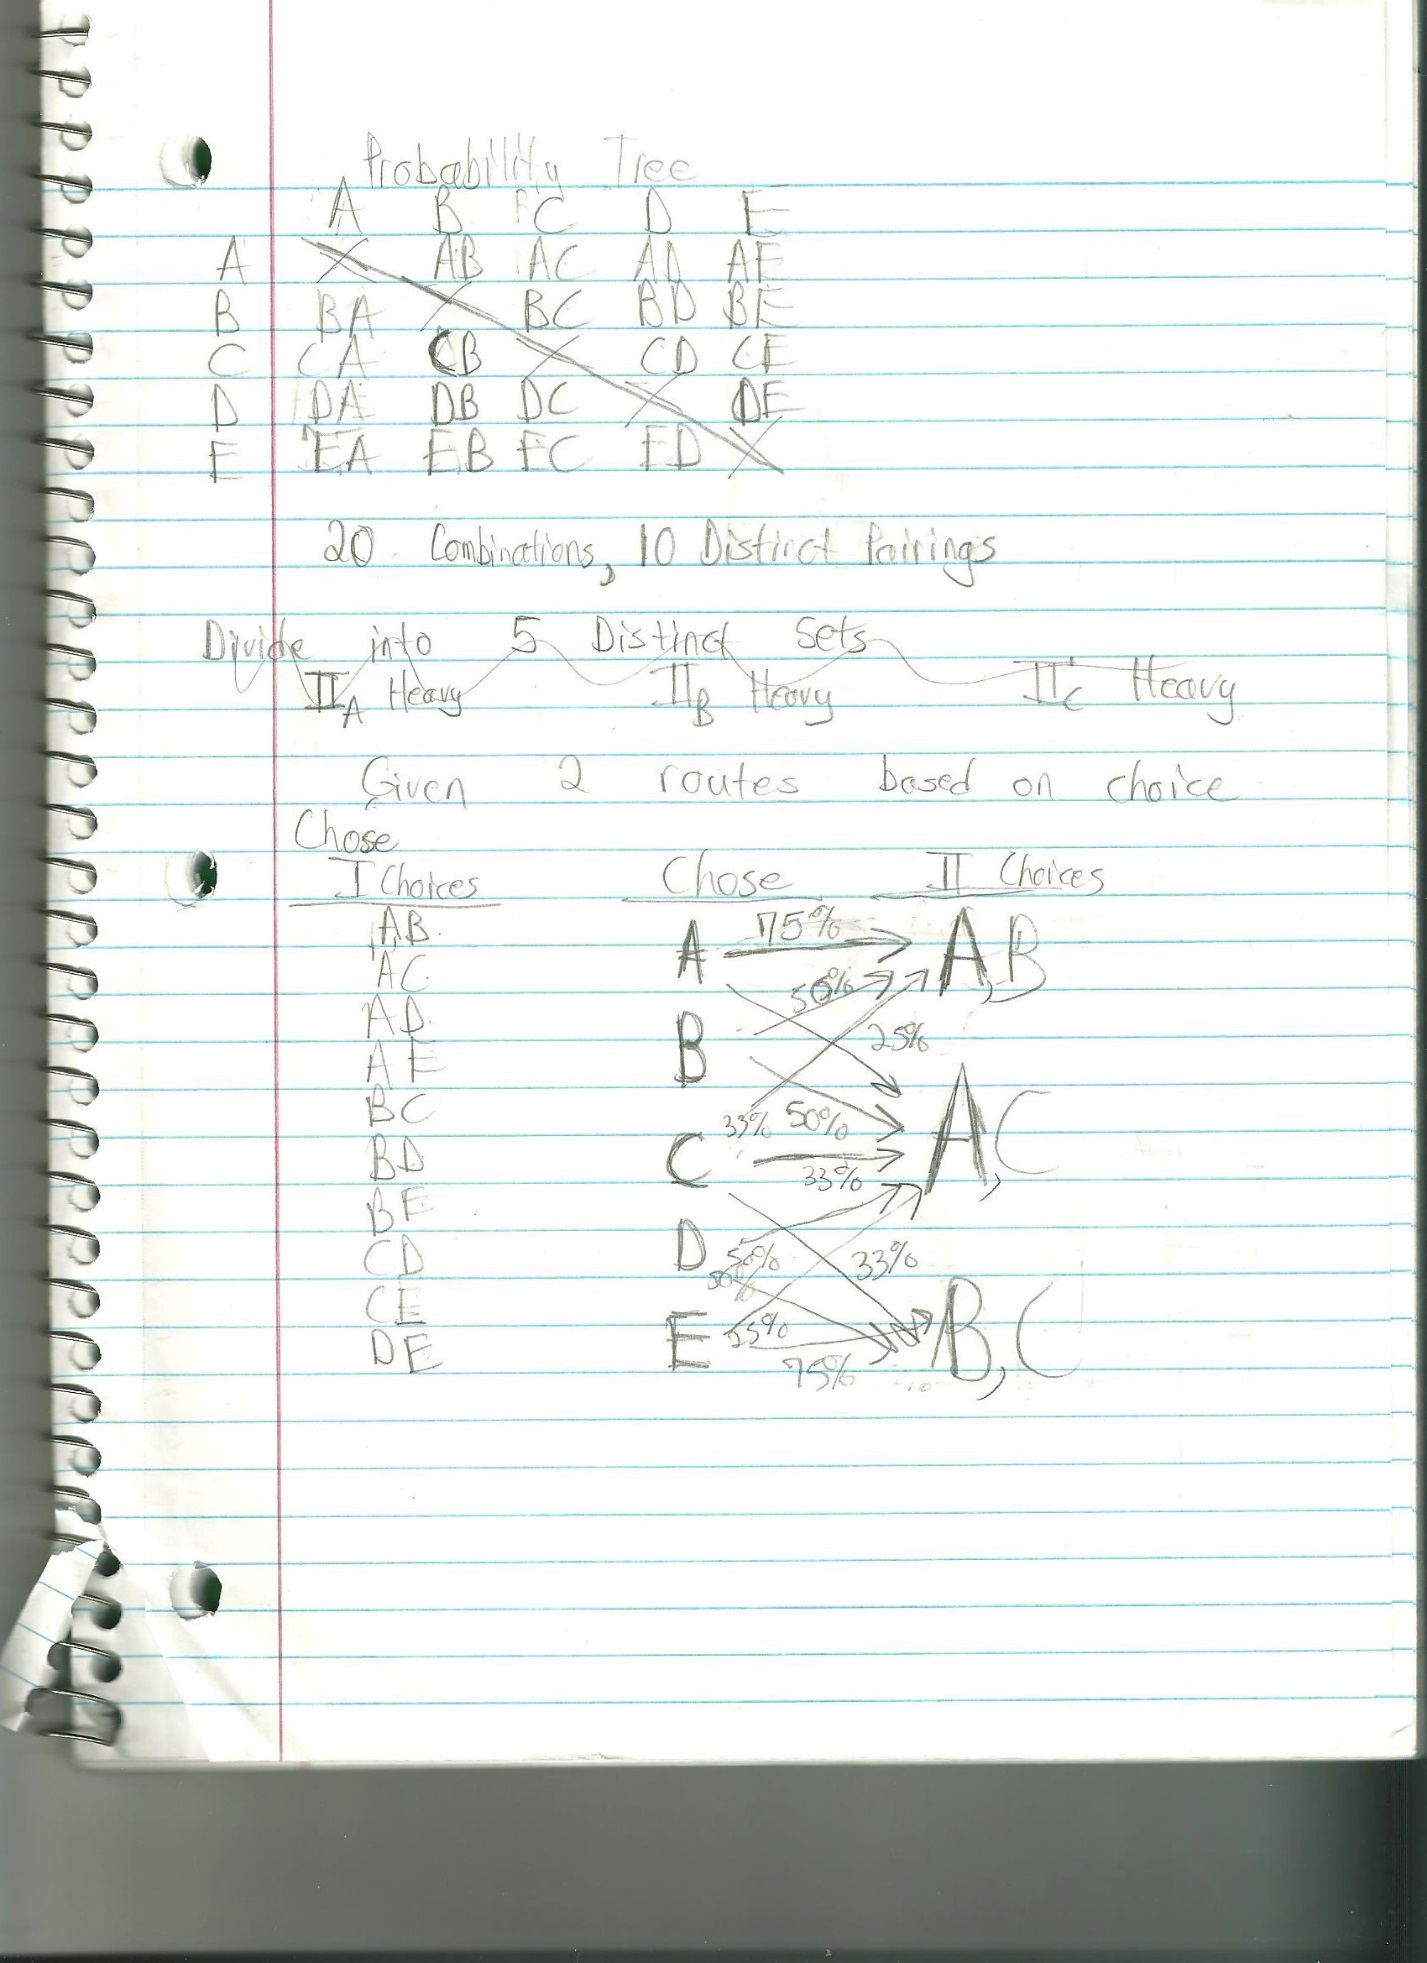 Probability Tree
A B C D E
A X AB AC AD AE
B BA X BC BD BE
C CA CB X CD CE
D DA DB DC X DE
E EA EB EC ED X
20 Combinations, 10 Distinct Pairings
Divide into 5 Distinct Sets
II A Heavy II B Heavy II C Heavy
Given 2 routes based on choice
Chose
I Choices Chose II Choices
AB
AC
AD
AE
BC
BD
BE
CD
CE
DE
A 75% A,B
50%
B 25%
33% 50% A,C
C 33%
D 50% 33%
E 25% B,C
75%